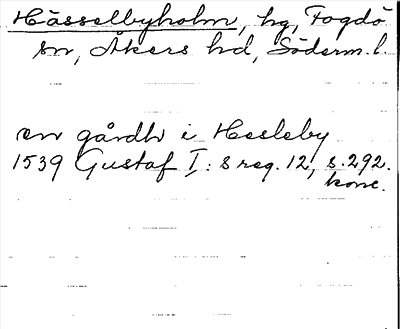 Hässelbyholm, hg, Fogdö
sn, Åkers hd, Söderm. l.
en gårdh i Hesleby
1539 Gustaf I: s reg. 12, s. 292.
konc.